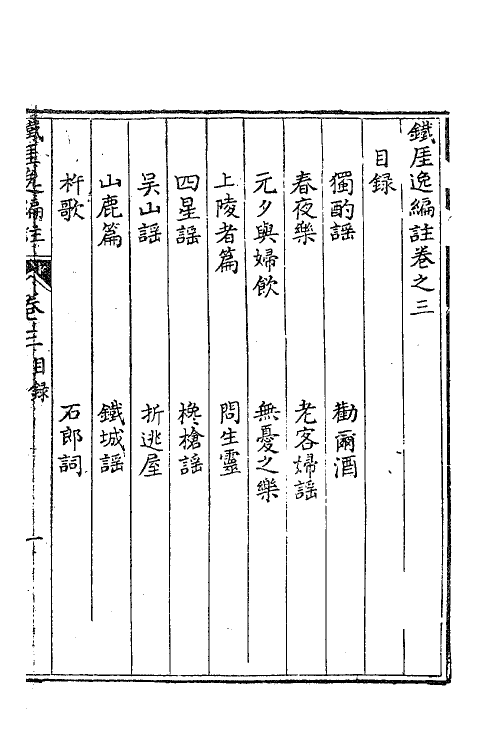 鐵厓逸編註卷之三
目録
獨酌謡　勸爾酒
春夜樂　老客婦謡
元夕與婦飲　無憂之樂
上陵者篇　問生靈
四星謡　欃槍謡
吴山謡　折逃屋
山鹿篇　鐵城謡
杵歌　石郎詞
鐵厓逸編註　卷三目録　一